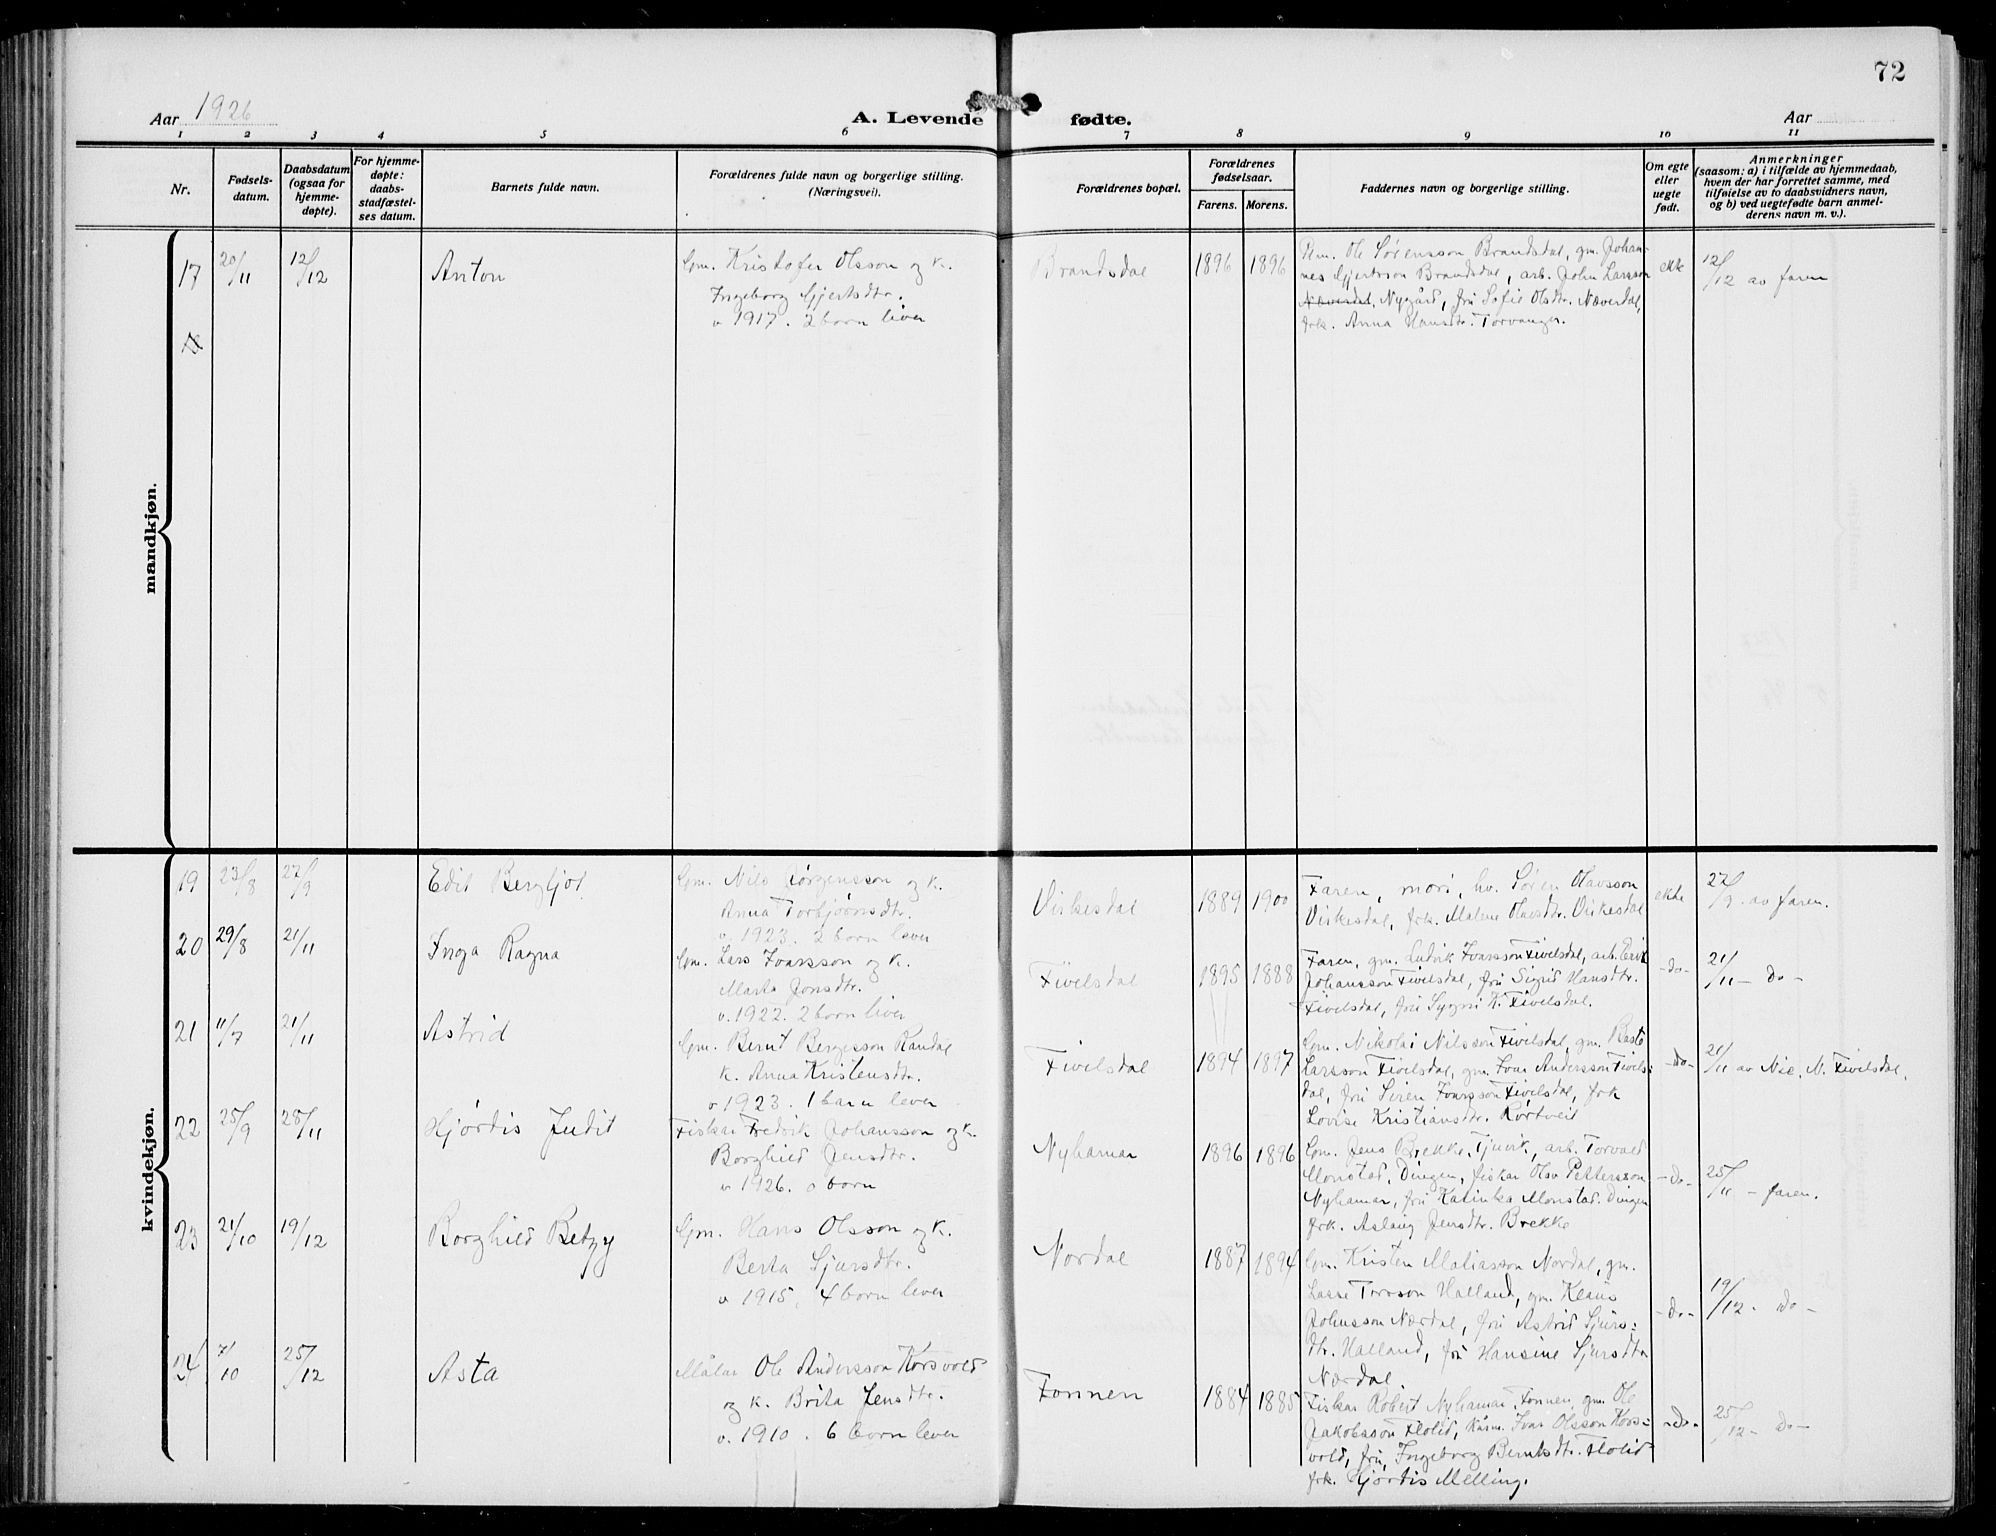 72
Aar 1926
A. Levende fødte.
Aar
1 2 3 4 5 6 7 8 9 10 11
Nr.
Fødsels-
datum.
Daabsdatum
(ogsaa for
hjemme-
døpte).
For hjemme-
døpte:
daabs-
stadfæstel-
ses datum.
Barnets fulde navn.
Forældrenes fulde navn og borgerlige stilling.
(Næringsvei).
Forældrenes bopæl.
Forældrenes
fødselsaar.
Farens. Morens.
Faddernes navn og borgerlige stilling.
Om egte
eller
uegte
født.
Anmerkninger
(saasom: a) i tilfælde av hjemmedaab,
hvem der har forrettet samme, med
tilføielse av to daabsvidners navn,
og b) ved uegtefødte barn anmel-
derens navn m. v.).
mandkjøn.
17 20/11 12/12 Anton
Gm. Kristofer Olsson og k.
Ingeborg Gjertsdtr.
v 1917. 2 born liver
Brandsdal 1896 1896
Rm. Ole Sørensson Brandsdal, gm. Johan-
nes Gjertsson Brandsdal, arb. John Larsson
Nygård, fru Sofie Olsdtr. Næverdal,
frk. Anna Hansdtr. Torvanger.
ekte 12/12 av faren
18
kvindekjøn.
19 23/8 27/9 Edit Bergljot
Gm. Nils Jørgensson og k.
Anna Torbjørnsdtr.
v. 1923. 2 born lever
Virkesdal 1889 1900
Faren, mori, hv. Søren Olavsson
Virkesdal, frk. Malene Olavsdtr. Virkesdal
ekte 27/9. av faren.
20 29/8 21/11 Inga Ragna
Gm. Lars Ivarsson og k.
Marta Jonsdtr.
v. 1922. 2 born liver
Fivelsdal 1895 1888
Faren, gm. Ludvik Ivarsson Fivelsdal, arb. Erik
Johansson Fivelsdal, fru Sigrid Hansdtr.
Fivelsdal, fru Sygni K. Fivelsdal.
-do- 21/11 - do -
21 11/7 21/11 Astrid
Gm. Bernt Bergesson Randal
k. Anna Kristensdtr.
v 1923. 1 barn lever
Fivelsdal 1894 1897
Gm. Nikolai Nilsson Fivelsdal, gm. Rasto
Larsson Fivelsdal, gm. Ivar Andersson Fivels=
dal, fru Siren Ivarsson Fivelsdal, frk
Lovise Kristiansdtr. Rørtveit
-do- 21/11 av Nic. N. Fivelsdal.
22 25/9 28/11 Hjørdis Judit
Fiskar Fredrik Johansson og k.
Borghild Jensdtr.
v 1926. 0 born
Nyhamar 1896 1896
Gm. Jens Brekke, Tjuvik, arb. Torvald
Monstad, Dingen, fiskar Olav Pettersson
Nyhamar, fru Katinka Monstad. Dingen
frk. Aslaug Jensdtr. Brekke
-do- 25/11 - faren.
23 21/10 19/12 Borghild Betzy
Gm. Hans Olsson og k.
Berta Sjursdtr.
v 1915, 4 born lever
Nordal 1887 1894
Gm. Kristen Matiasson Nordal, gm.
Lasse Torsson Halland, gm. Klaus
Johnsson Nærdal, fru Astrid Sjurs=
dtr. Halland, fru Hansine Sjursdtr
Nærdal.
-do- 19/12 - do -
24 7/10 25/12 Asta
Målar Ole Andersson Korsvold
og k. Brita Jensdtr.
v. 1910. 6 born lever
Fonnen 1884 1885
Fiskar Robert Nyhamar, Fonnen, gm. Ole
Jakobsson Flolid, kårm. Ivar Olsson Kors=
vold, fru, Ingeborg Berntsdtr. Flolid
frk. Hjørdis Melling.
-do- 25/12 - do -